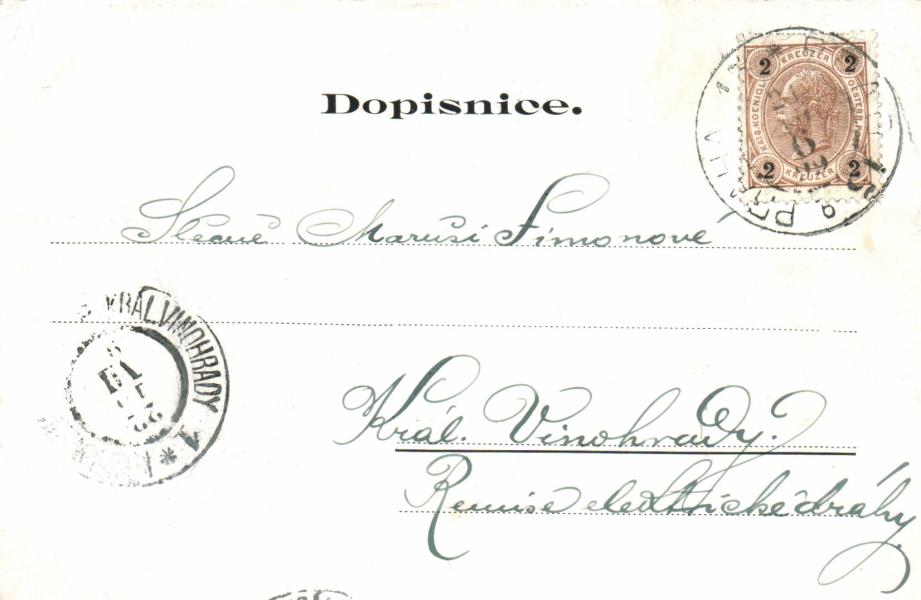 Dopisnice.
2 KREUZER 2
KAIS. KOENIGL. OESTERR. POST
2 KREUZER 2
PRAHA
Slečně Maruši Šímonové
KRÁL. VINOHRADY 1 *
Král. Vinohrady.
Remise elektrické dráhy